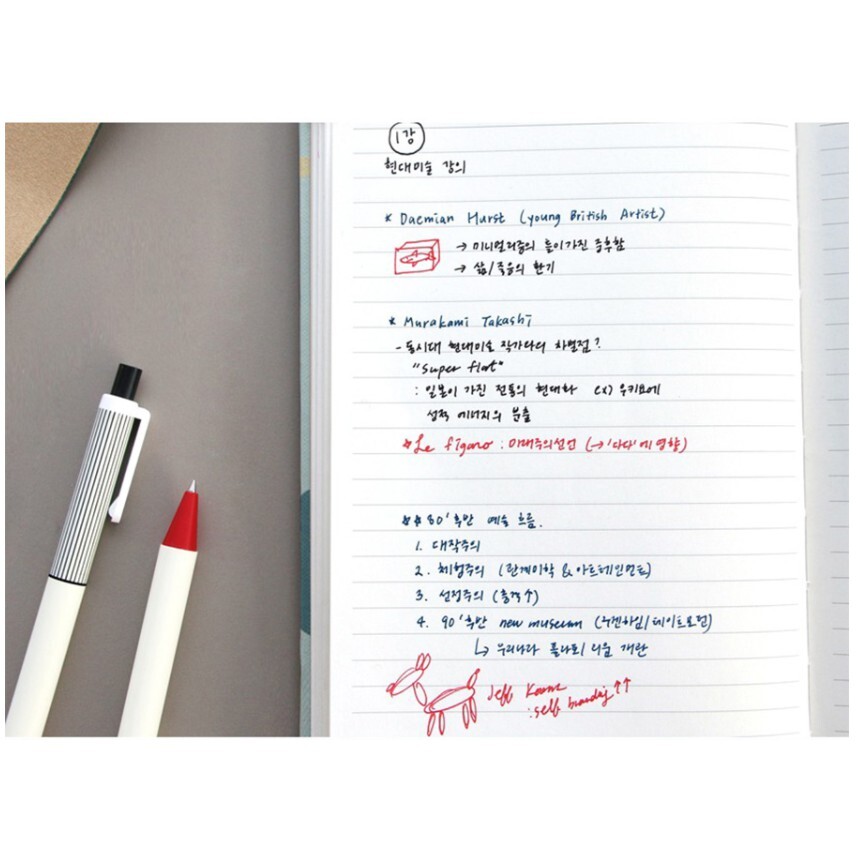 1강
현대미술 강의
* Daemian Hurst (young British Artist)
→ 미니멀리즘의 높이가진 중후함
→ 삶/죽음의 환기
* Murakami Takashi
- 동시대 현대미술 작가와의 차별점?
"super flat"
: 일본이 가진 전통의 현대화 ex) 우키요에
성적 에너지의 분출
* Le figaro : 미래주의선언 (→'다다'에 영향)
** 80' 후반 예술 흐름.
1. 대작주의
2. 체험주의 (관계미학 & 아트테인먼트)
3. 선정주의 (충격↑)
4. 90' 후반 new museum (구겐하임/테이트모던)
↳ 우리나라 플라토/리움 개관
Jeff Koons
: self branding ↑↑